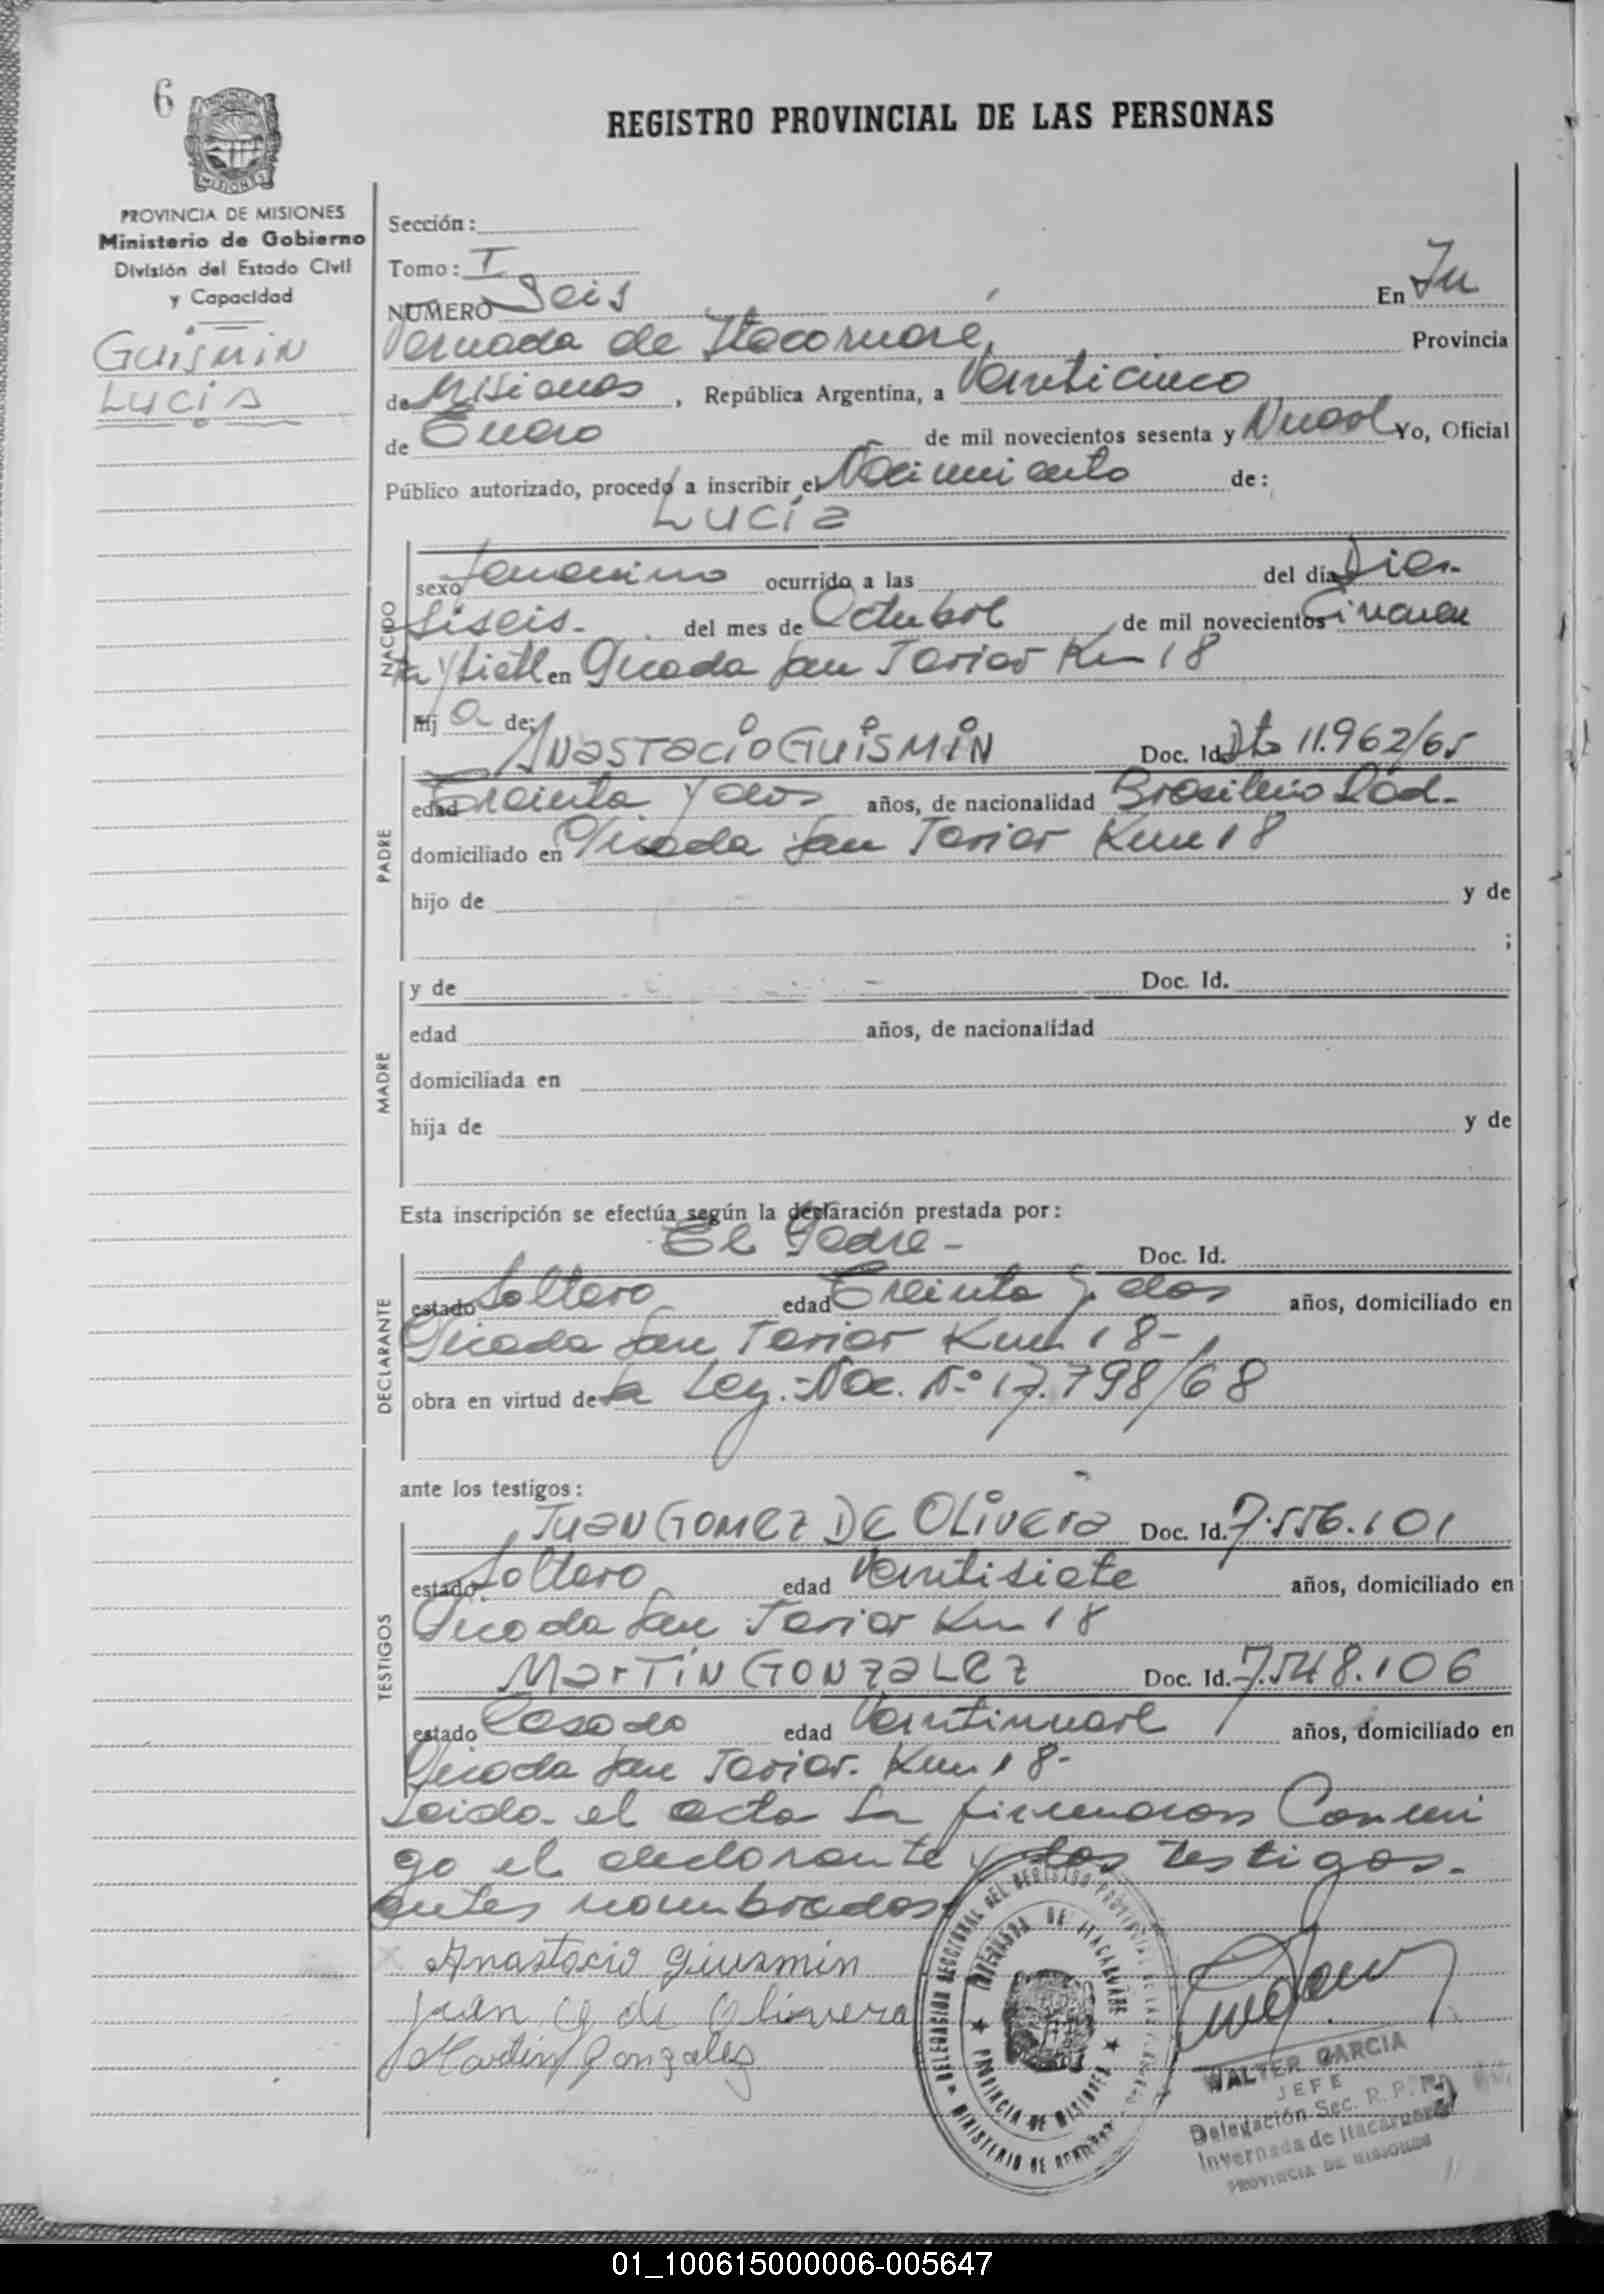 6
REGISTRO PROVINCIAL DE LAS PERSONAS
PROVINCIA DE MISIONES
Ministerio de Gobierno
División del Estado Civil
y Capacidad
GUISMIN
LUCIA
Sección:
Tomo: I
NUMERO Seis En In
vernada de Itacaruaré, Provincia
de Misiones, República Argentina, a Veinticinco
de Enero de mil novecientos sesenta y Nueve Yo, Oficial
Público autorizado, procedo a inscribir el Nacimiento de:
LUCIA
NACIDO
sexo femenino ocurrido a las del día Die-
siseis- del mes de Octubre de mil novecientos Cincuen
ta y siete en Picada San Javier Km 18
hij a de:
PADRE
ANASTACIO GUISMIN Doc. Id. Dto 11.962/65
edad Treinta y dos años, de nacionalidad Brasileño
domiciliado en Picada San Javier Km 18
hijo de y de
;
MADRE
y de Doc. Id.
edad años, de nacionalidad
domiciliada en
hija de y de
Esta inscripción se efectúa según la declaración prestada por:
DECLARANTE
El Padre- Doc. Id.
estado Soltero edad Treinta y dos años, domiciliado en
Picada San Javier Km 18-
obra en virtud de la Ley.-Nac. N° 17.798/68
ante los testigos:
TESTIGOS
JUAN GOMEZ DE OLIVERA Doc. Id. 7.556.101
estado Soltero edad Veintisiete años, domiciliado en
Picada San Javier Km 18
MARTIN GONZALEZ Doc. Id. 7.548.106
estado Casado edad Veintinueve años, domiciliado en
Picada San Javier. Km 18-
Leida el acta la firmaron Conmi
go el declarante y los testigos.
antes nombrados
Anastacio Giusmin
Juan G de Olivera
Martin Gonzalez
DELEGACION SECCIONAL DEL REGISTRO PROVINCIAL DE LAS PERSONAS
INVERNADA DE ITACARUARE
PROVINCIA DE MISIONES
MINISTERIO DE GOBIERNO
WALTER GARCIA
JEFE
Delegación Sec. R.P.P.
Invernada de Itacaruaré
PROVINCIA DE MISIONES
01_100615000006-005647